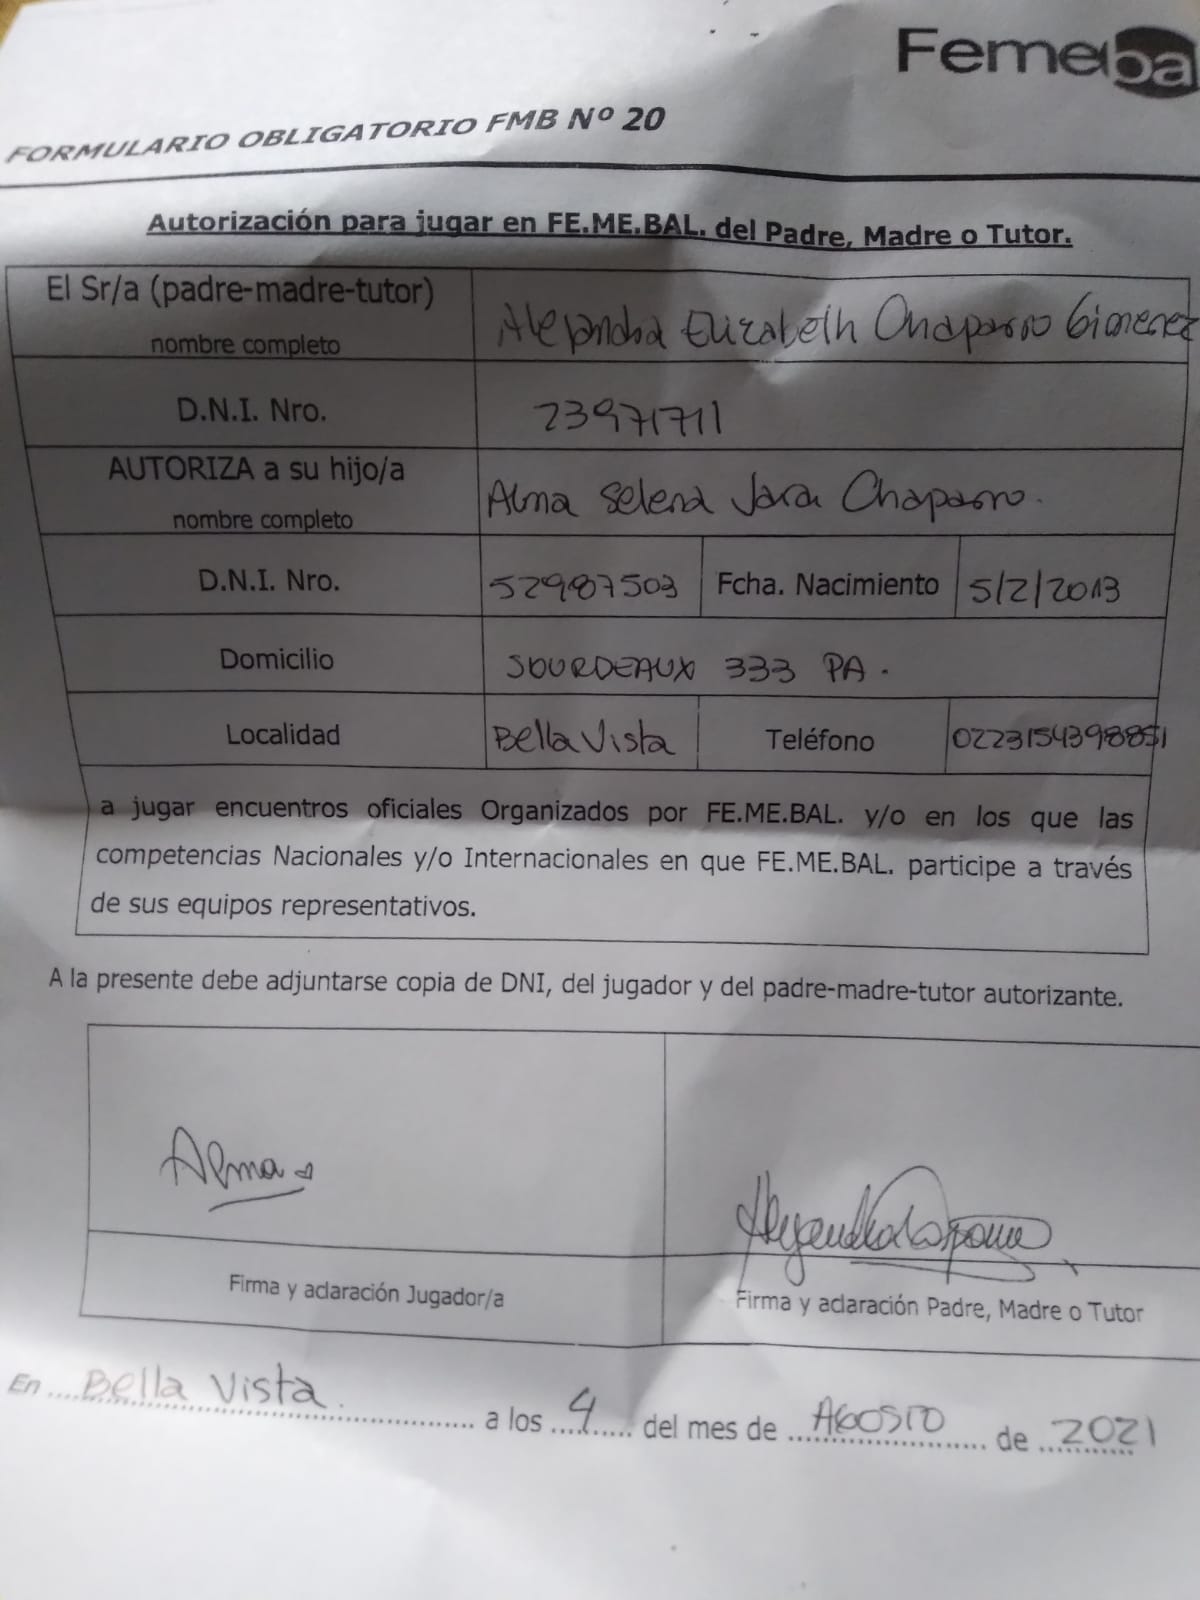 Femeba
FORMULARIO OBLIGATORIO FMB Nº 20
Autorización para jugar en FE.ME.BAL. del Padre, Madre o Tutor.
El Sr/a (padre-madre-tutor)
nombre completo
Alejandra Elizabeth Chaparro Gimenez
D.N.I. Nro.
23971711
AUTORIZA a su hijo/a
nombre completo
Alma Selena Jara Chaparro.
D.N.I. Nro.
52987503
Fcha. Nacimiento
5/2/2013
Domicilio
SOURDEAUX 333 PA.
Localidad
Bella Vista
Teléfono
0223154398851
a jugar encuentros oficiales Organizados por FE.ME.BAL. y/o en los que las
competencias Nacionales y/o Internacionales en que FE.ME.BAL. participe a través
de sus equipos representativos.
A la presente debe adjuntarse copia de DNI, del jugador y del padre-madre-tutor autorizante.
Alma
Firma y aclaración Jugador/a
Firma y aclaración Padre, Madre o Tutor
En .... Bella Vista ........ a los ..4.. del mes de .. AGOSTO .. de .. 2021